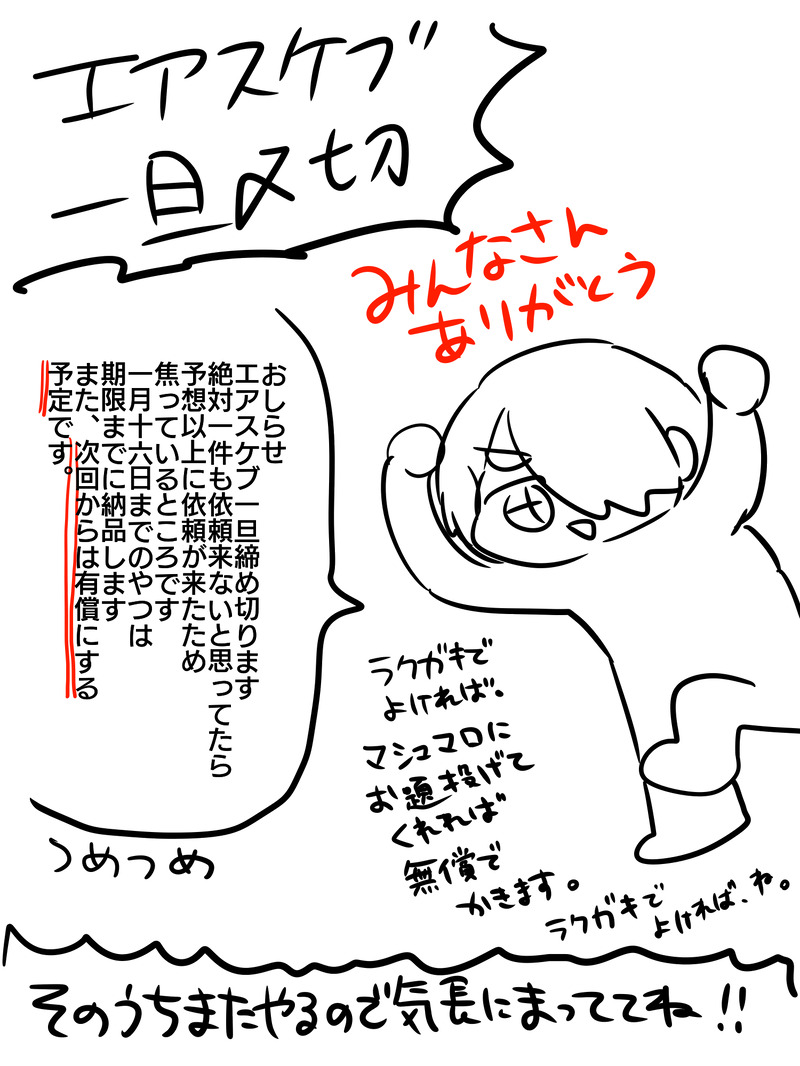 エアスケブ
一旦〆切
みんなさん
ありがとう
おしらせ
エアスケブ一旦締め切ります
絶対一件も依頼来ないと思ってたら
予想以上に依頼が来たため
焦っているところです
一月十六日までのやつは
期限までに納品します
また、次回からは有償にする
予定です。
ラクガキで
よければ。
マシュマロに
お題投げて
くれれば
無償で
かきます。
ラクガキで
よければ、ね。
つめつめ
そのうちまたやるので気長にまっててね!!